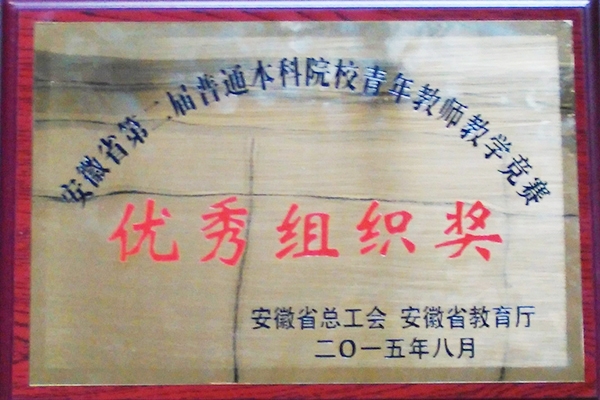 安徽省第二届普通本科院校青年教师教学竞赛
优秀组织奖
安徽省总工会 安徽省教育厅
二〇一五年八月